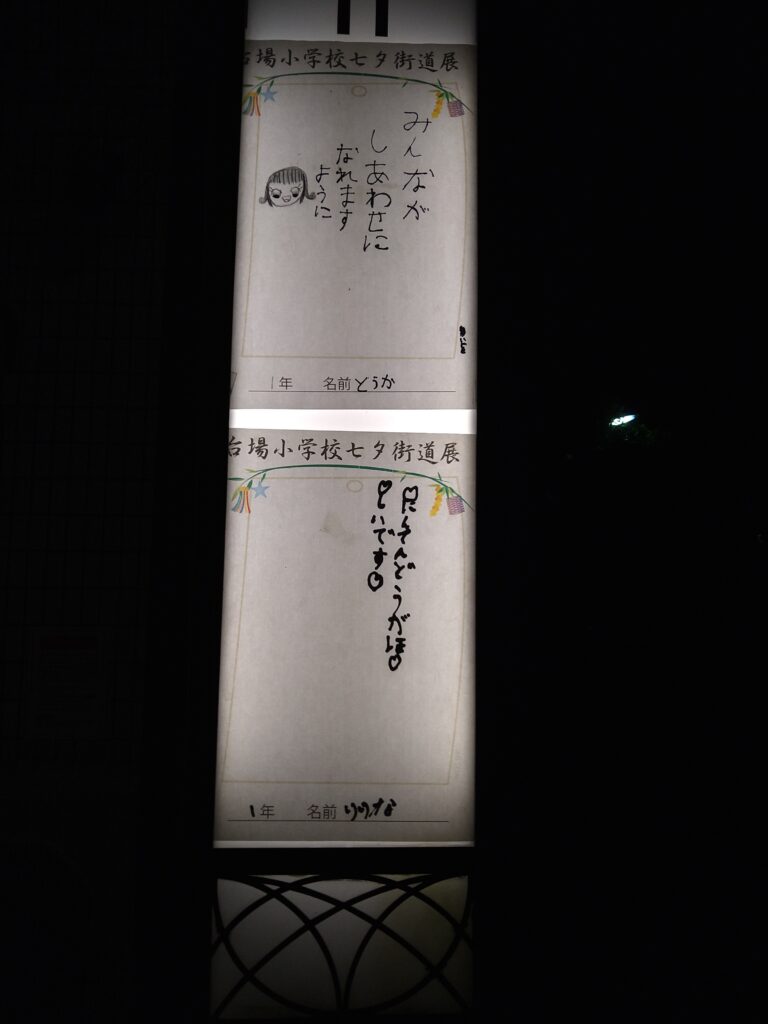 台場小学校七夕街道展
みんなが
しあわせに
なれます
ように
1年 名前 とうか
台場小学校七夕街道展
にんてんどうがほ
しいです
1年 名前 りりな